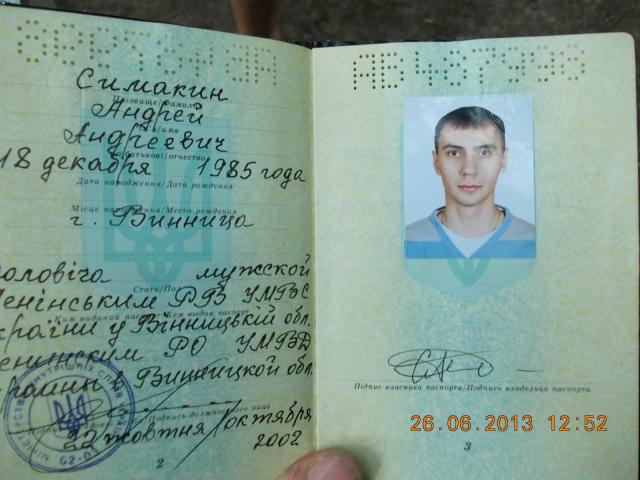 Симакин
Прізвище/Фамилия
Андрей
Ім'я/имя
Андреевич
По батькові/отчество
18 декабря 1985 года
Дата народження/Дата рождения
Місце народження/Место рождения
г. Винница
чоловіча мужской
Стать/Пол
Ленінським РВ УМВС
Ким виданий паспорт/Кем выдан паспорт
України у Вінницькій обл.
Ленинским РО УМВД
Украины в Винницкой обл.
Подпись должностного лица
22 жовтня/октября
2002
2
АВ 487998
Підпис власника паспорта/Подпись владельца паспорта
26.06.2013 12:52
3